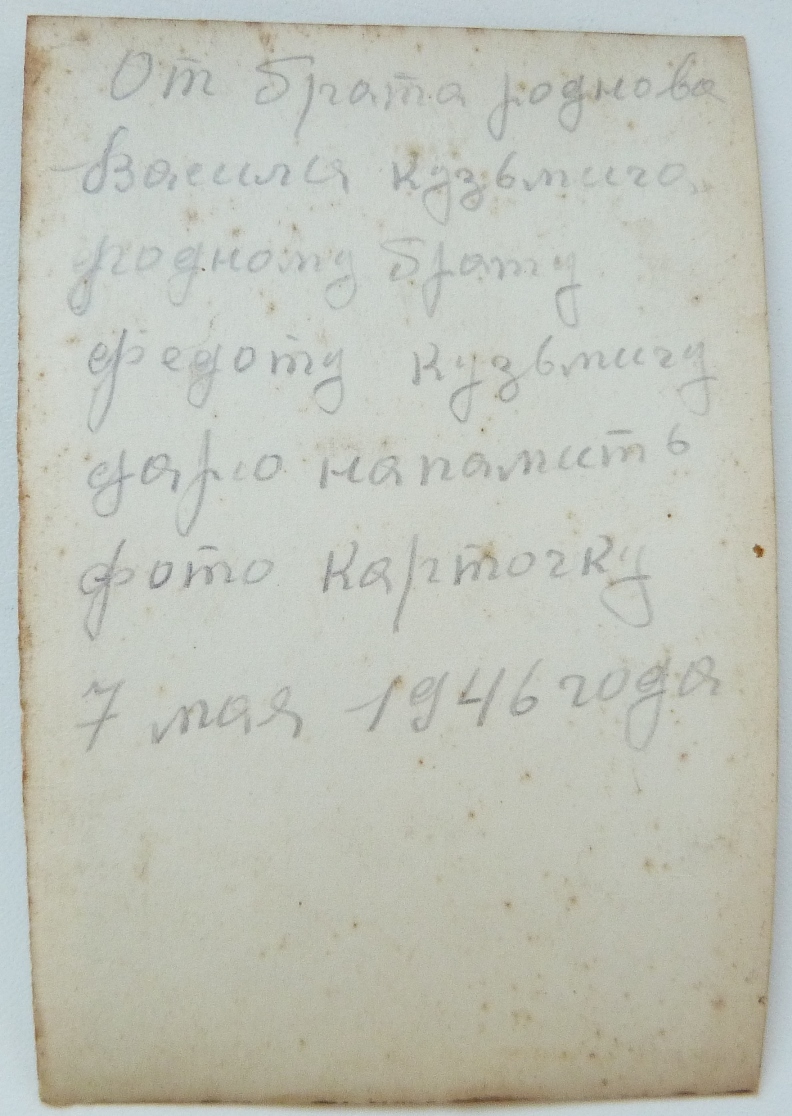 От брата роднова
Василия Кузьмича
родному брату
федоту кузьмичу
дарю напамить
фото карточку
7 мая 1946 года